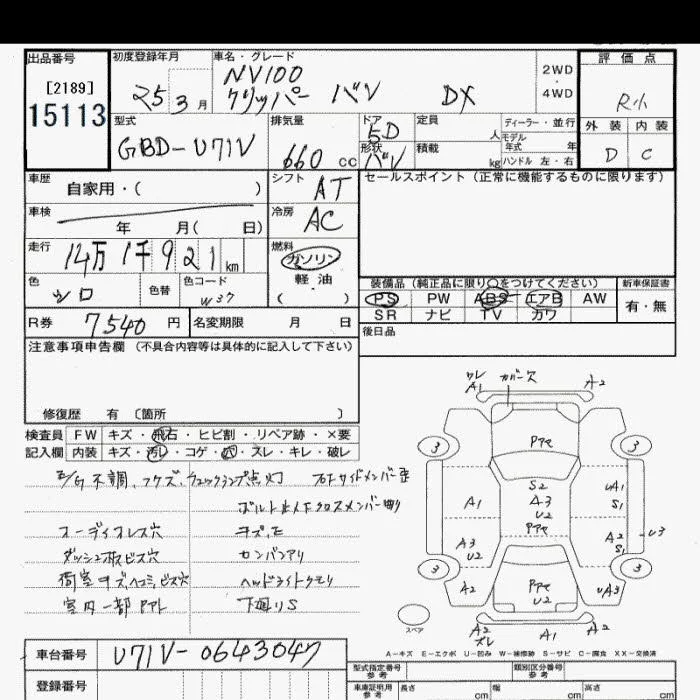 出品番号
[2189]
15113
初度登録年月
25 3 月
車名・グレード
NV100
クリッパー バン DX
2WD
・
4WD
評価点
R小
外装 内装
D C
型式
GBD-U71V
排気量
660 cc
ドア
5D
形状
バン
定員
人
積載
kg
ディーラー・並行
モデル
年式 年
ハンドル 左・右
車歴
自家用・( )
シフト
AT
セールスポイント(正常に機能するものに限ります)
車検
年 月( 日)
冷房
AC
走行
14万 1千 9 2 1 km
燃料
ガソリン
軽油
( )
色
シロ
色替
色コード
W37
装備品(純正品に限り○をつけてください)
PS PW ABS エアB AW
SR ナビ TV カワ
新車保証書
有・無
R券 7540 円
名変期限 月 日
後日品
注意事項申告欄(不具合内容等は具体的に記入して下さい)
修復歴 有 〔箇所 〕
検査員
記入欄
FW キズ・飛石・ヒビ割・リペア跡・×要
内装 キズ・汚レ・コゲ・穴・スレ・キレ・破レ
E/G不調、コゲズ、チェックランプ点灯
右Fサイドメンバー歪
ボルト止メFクロスメンバー曲り
オーディオレス穴
キズ、モ
ダッシュ板ビス穴
カンバンアリ
荷室キズヘコミ、ビス穴
ヘッドライトクモリ
室内一部PPテレ
下廻りS
ワレ
A1
カバー欠
A2
3
3
PPテ
S2
A3
U2
PPテ
A1
UA1
S1
A3
U2
A2
S1
U3
3
3
A2
PPテ
U2
UA3
スペア
A2
ズレ
A1
A2
A-キズ E-エクボ U-凹み W-補修跡 S-サビ C-腐食 XX-交換済
車台番号
U71V-0643047
登録番号
型式指定番号
参考
類別区分番号
参考
車庫証明用
参考
長さ cm
幅 cm
高さ cm